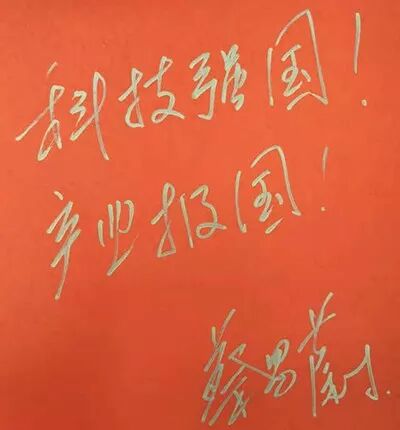 科技强国!
产业报国!
蔡